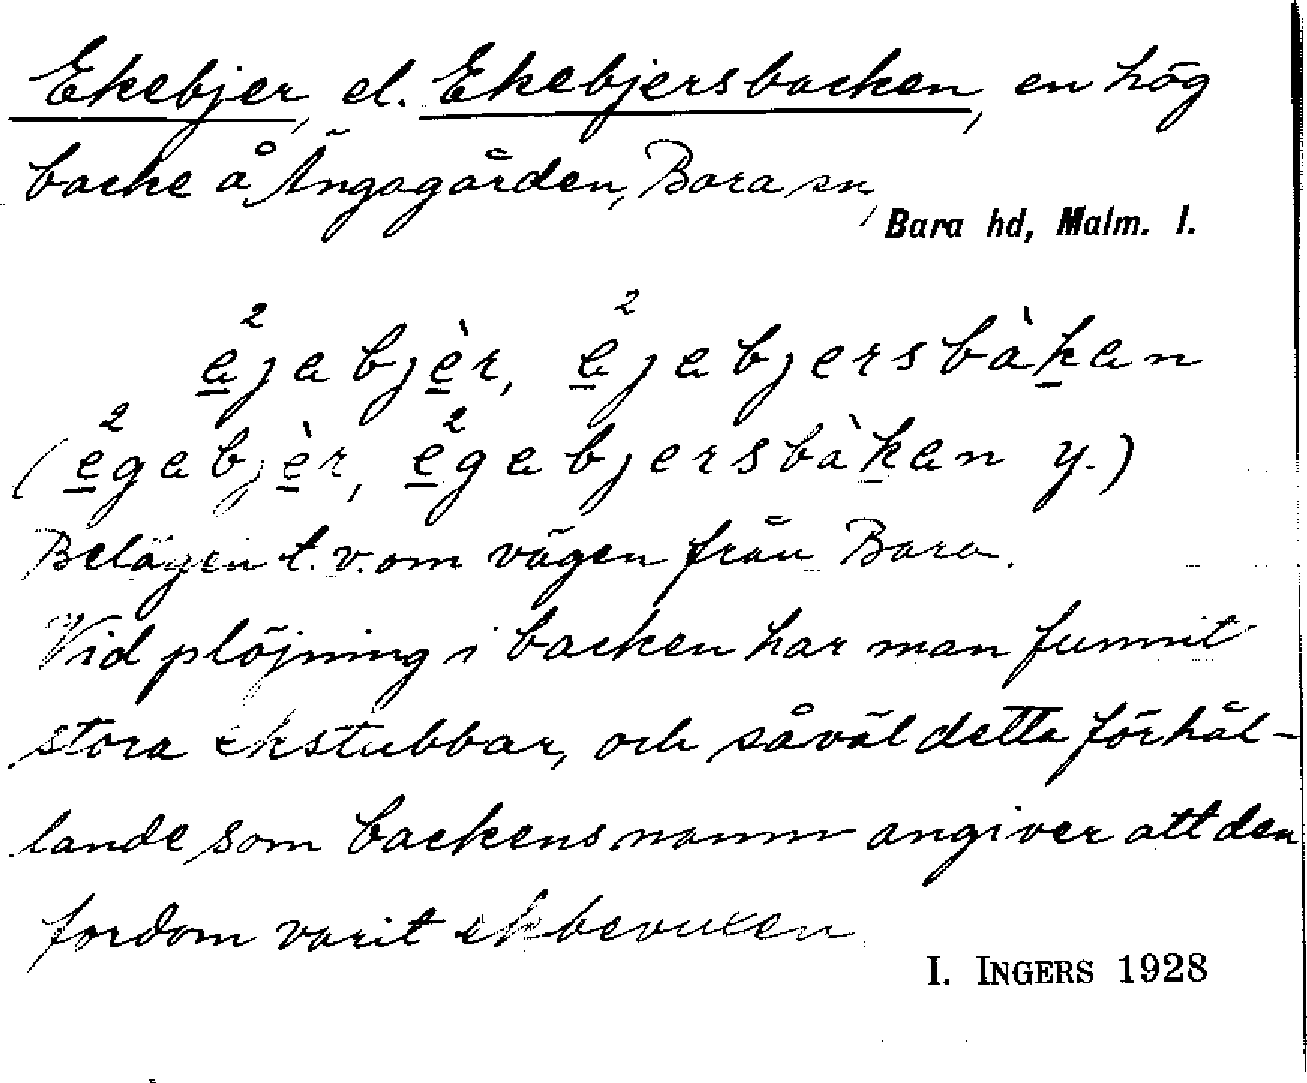 Ekebjer, el. Ekebjersbacken, en hög
backe å Ängagården, Bara sn,
Bara hd, Malm. l.
e̲²jabjè̲r, e̲²jabjersbàk̲an
(e̲²gabjè̲r, e̲²gabjersbàk̲an y.)
Belägen t.v. om vägen från Bara.
Vid plöjning i backen har man funnit
stora ekstubbar, och såväl detta förhål-
lande som backens namn angiver att den
fordom varit ekbevuxen.
I. INGERS 1928